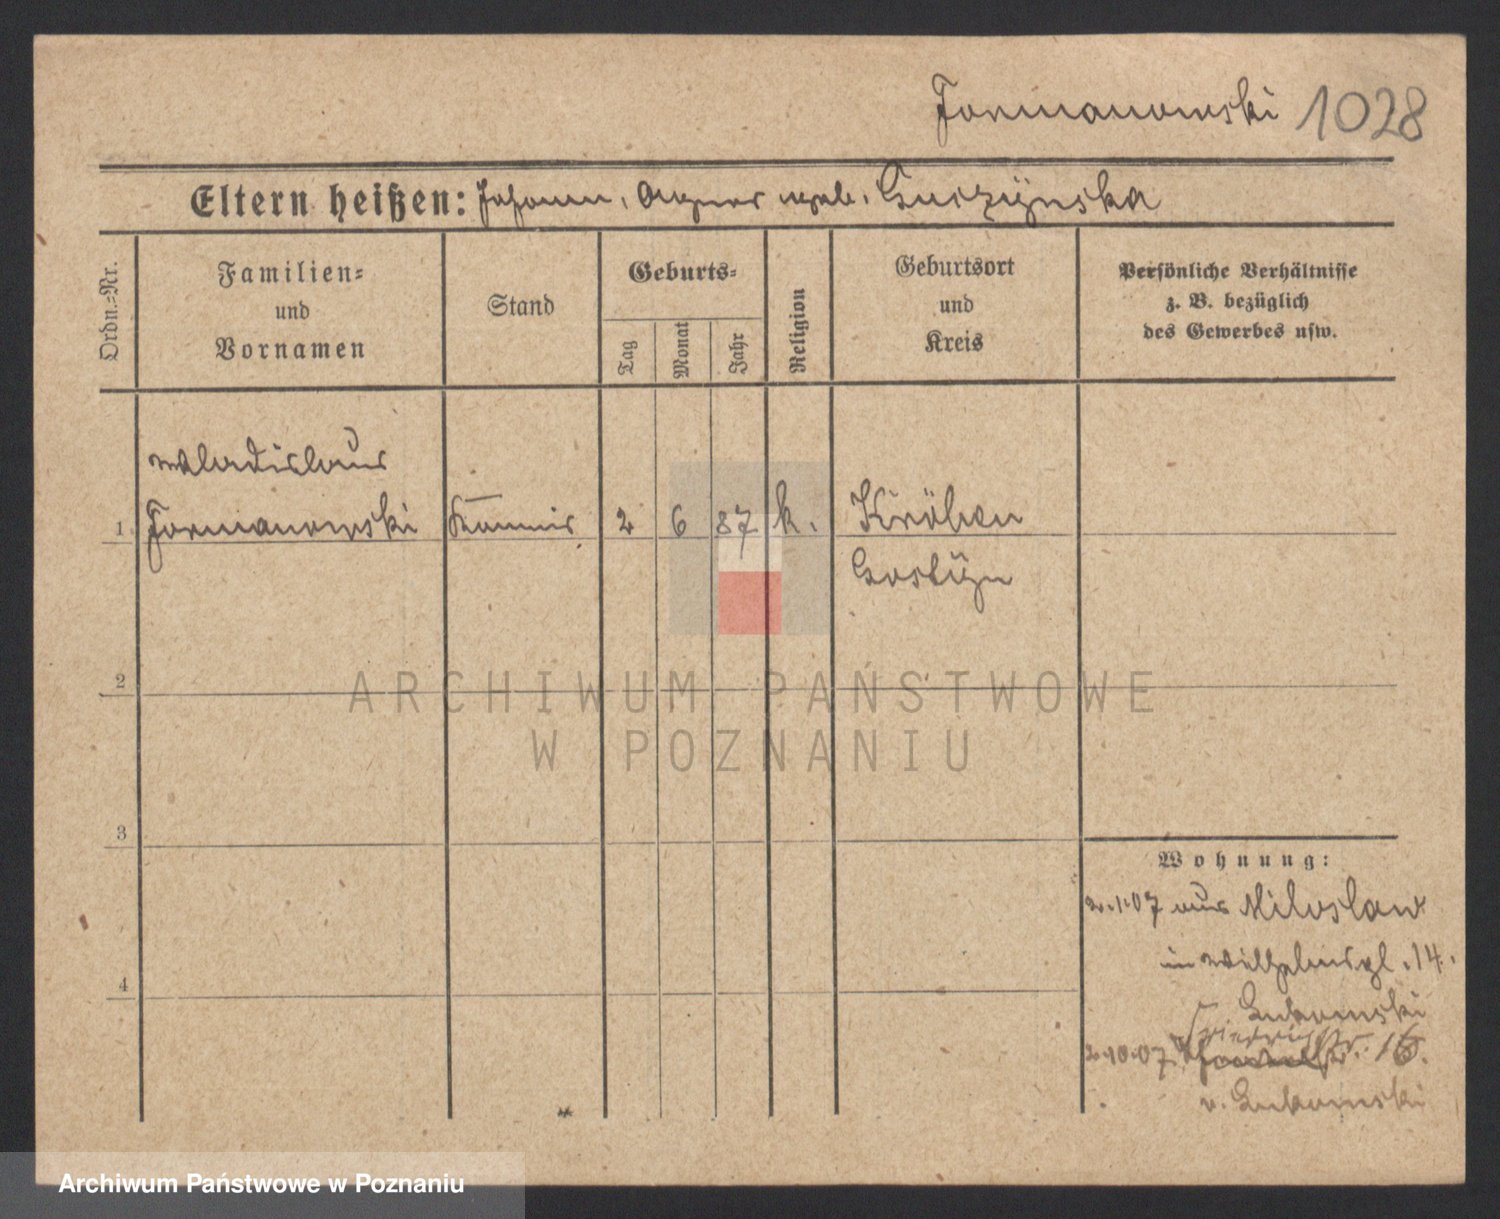 Formanowski 1028
Eltern heißen: Johann, Agnes geb. Guszynska
Ordn.-Nr.
Familien-
und
Vornamen
Stand
Geburts-
Tag
Monat
Jahr
Religion
Geburtsort
und
Kreis
Persönliche Verhältnisse
z. B. bezüglich
des Gewerbes usw.
Wladislaus
1. Formanowski Kommis 2 6 87 k. Kröben
Gostyn
2
3
4
Wohnung:
2.1.07 aus Miloslaw
in Wilhelmspl. 14.
Lukomski
Friedrichstr.
2.10.07 16.
v. Lukomski
ARCHIWUM PAŃSTWOWE
W POZNANIU
Archiwum Państwowe w Poznaniu